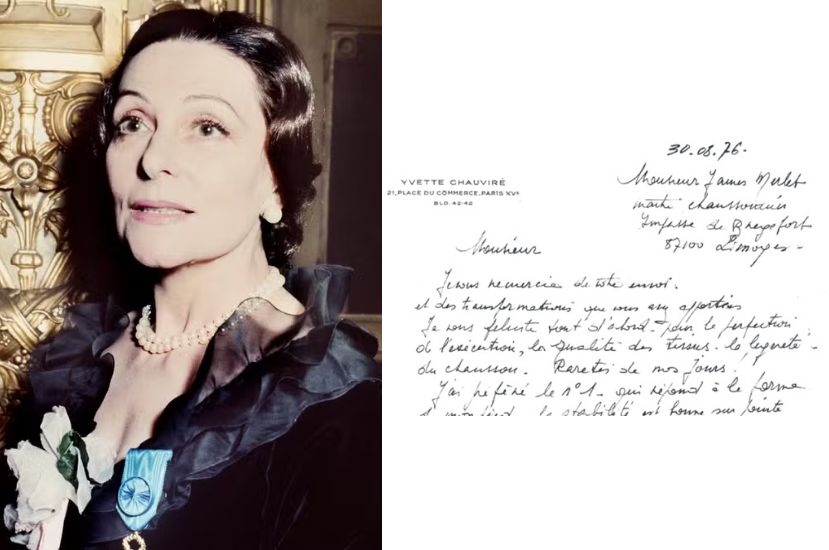 30.08.76.
YVETTE CHAUVIRÉ
21, PLACE DU COMMERCE. PARIS XVe
BLO. 42-42
Monsieur James Merlet
maître chaussonnier
Impasse de
87100 Limoges -
Monsieur
Je vous remercie de votre envoi.
et des transformations que vous
Je vous félicite tout d'abord - pour la perfection
de l'exécution, la qualité des tissus - la légèreté -
du chausson. Raretés de nos jours !
J'ai préféré le n° 1 - qui répond à la forme
la stabilité est bonne sur pointe